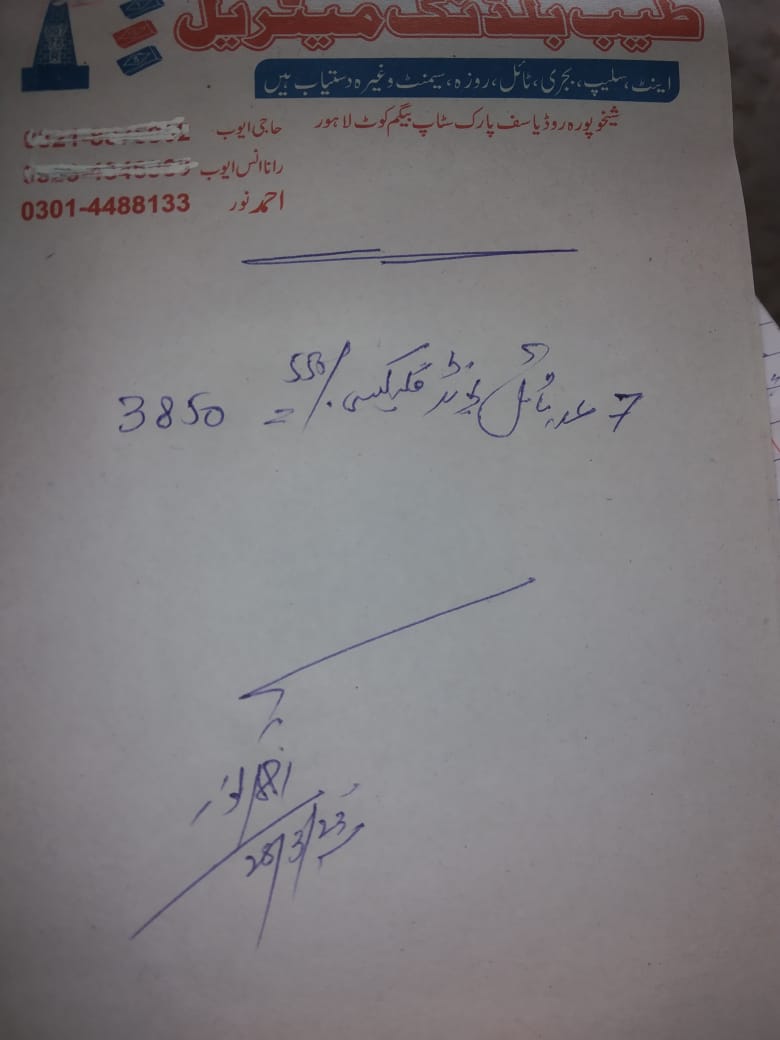 طیب بلڈنگ میٹریل
اینٹ، سلیپ، بجری، ٹائل، روڑہ، سیمنٹ وغیرہ دستیاب ہیں
شیخوپورہ روڈ یاسف پارک سٹاپ بیگم کوٹ لاہور
حاجی ایوب
رانا انس ایوب
احمد نور 0301-4488133
7 عدد ٹائل گلیکسی 550/. = 3850
28/3/23